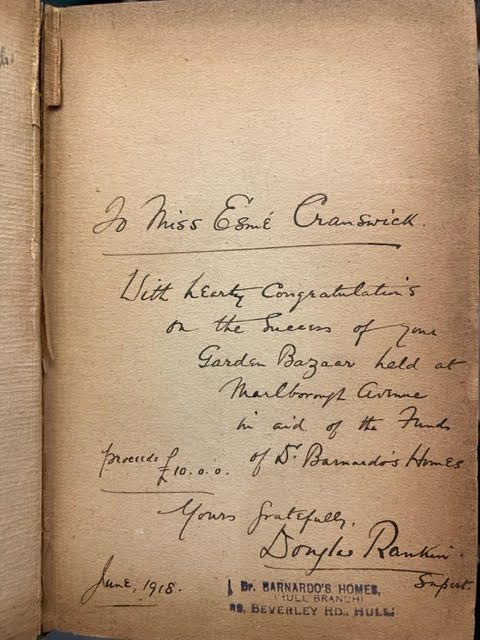 To Miss Esmé Cranswick.
With hearty Congratulations
on the Success of your
Garden Bazaar held at
Marlborough Avenue
in aid of the Funds
of Dr Barnardo's Homes
proceeds £10.0.0.
Yours gratefully,
Douglas Rankin.
Supert.
June, 1918.
Dr. BARNARDO'S HOMES,
(HULL BRANCH)
BEVERLEY RD., HULL